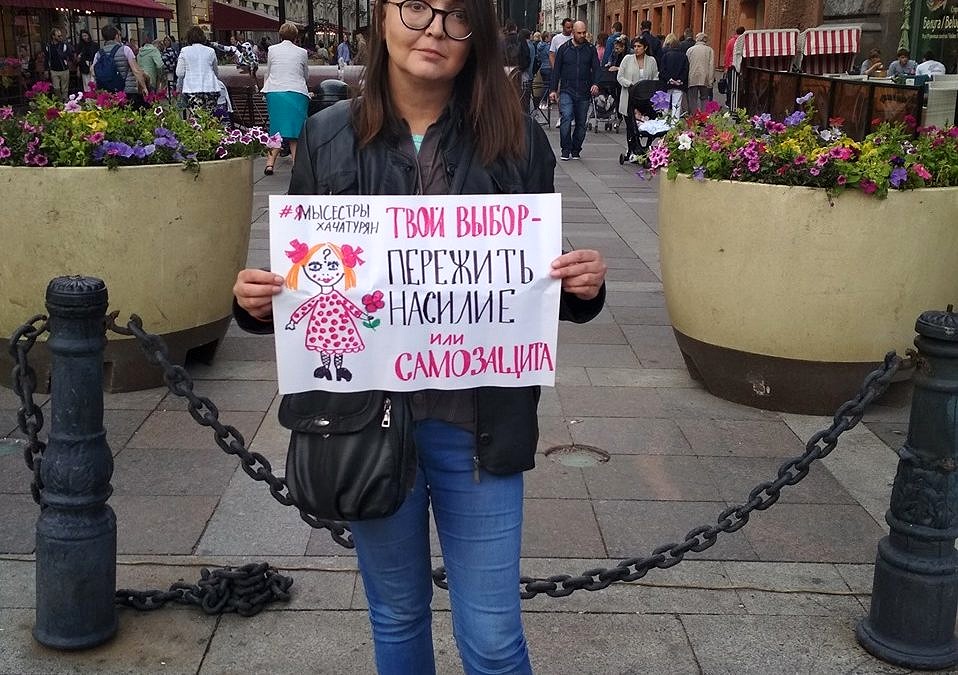 #ЯМЫСЕСТРЫ
ХАЧАТУРЯН
ТВОЙ ВЫБОР-
ПЕРЕЖИТЬ
НАСИЛИЕ
ИЛИ
САМОЗАЩИТА
?
Белуга / Belug